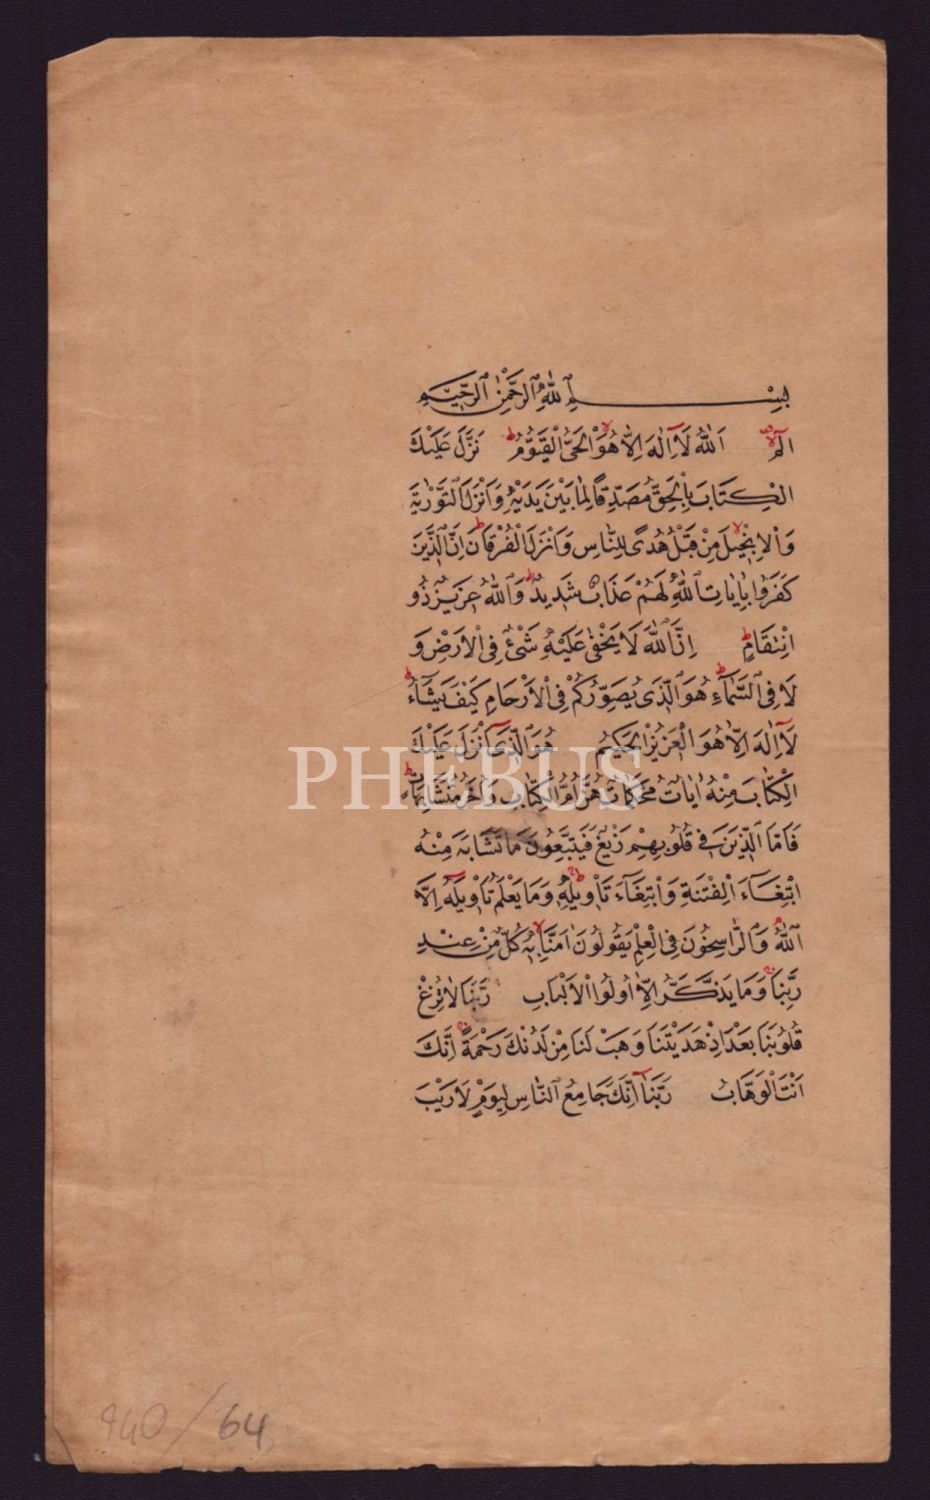 بِسْمِ ٱللّٰهِ ٱلرَّحْمٰنِ ٱلرَّحٖيمِ
الٓمٓ اَللّٰهُ لَٓا اِلٰهَ اِلَّا هُوَ الْحَىُّ الْقَيُّومُ نَزَّلَ عَلَيْكَ
الْكِتَابَ بِالْحَقِّ مُصَدِّقًا لِمَا بَيْنَ يَدَيْهِ وَاَنْزَلَ التَّوْرٰيةَ
وَالْاِنْجٖيلَ مِنْ قَبْلُ هُدًى لِلنَّاسِ وَاَنْزَلَ الْفُرْقَانَ اِنَّ الَّذٖينَ
كَفَرُوا بِاٰيَاتِ اللّٰهِ لَهُمْ عَذَابٌ شَدٖيدٌ وَاللّٰهُ عَزٖيزٌ ذُو
انْتِقَامٍ اِنَّ اللّٰهَ لَا يَخْفٰى عَلَيْهِ شَىْءٌ فِى الْاَرْضِ وَ
لَا فِى السَّمَٓاءِ هُوَ الَّذٖى يُصَوِّرُكُمْ فِى الْاَرْحَامِ كَيْفَ يَشَٓاءُ
لَٓا اِلٰهَ اِلَّا هُوَ الْعَزٖيزُ الْحَكٖيمُ هُوَ الَّذٖٓى اَنْزَلَ عَلَيْكَ
الْكِتَابَ مِنْهُ اٰيَاتٌ مُحْكَمَاتٌ هُنَّ اُمُّ الْكِتَابِ وَاُخَرُ مُتَشَابِهَاتٌ
فَاَمَّا الَّذٖينَ فٖى قُلُوبِهِمْ زَيْغٌ فَيَتَّبِعُونَ مَا تَشَابَهَ مِنْهُ
ابْتِغَٓاءَ الْفِتْنَةِ وَابْتِغَٓاءَ تَاْوٖيلِهٖ وَمَا يَعْلَمُ تَاْوٖيلَهُٓ اِلَّا
اللّٰهُ وَالرَّاسِخُونَ فِى الْعِلْمِ يَقُولُونَ اٰمَنَّا بِهٖ كُلٌّ مِنْ عِنْدِ
رَبِّنَا وَمَا يَذَّكَّرُ اِلَّا اُولُوا الْاَلْبَابِ رَبَّنَا لَا تُزِغْ
قُلُوبَنَا بَعْدَ اِذْ هَدَيْتَنَا وَهَبْ لَنَا مِنْ لَدُنْكَ رَحْمَةً اِنَّكَ
اَنْتَ الْوَهَّابُ رَبَّنَٓا اِنَّكَ جَامِعُ النَّاسِ لِيَوْمٍ لَا رَيْبَ
PHEBUS
940/64